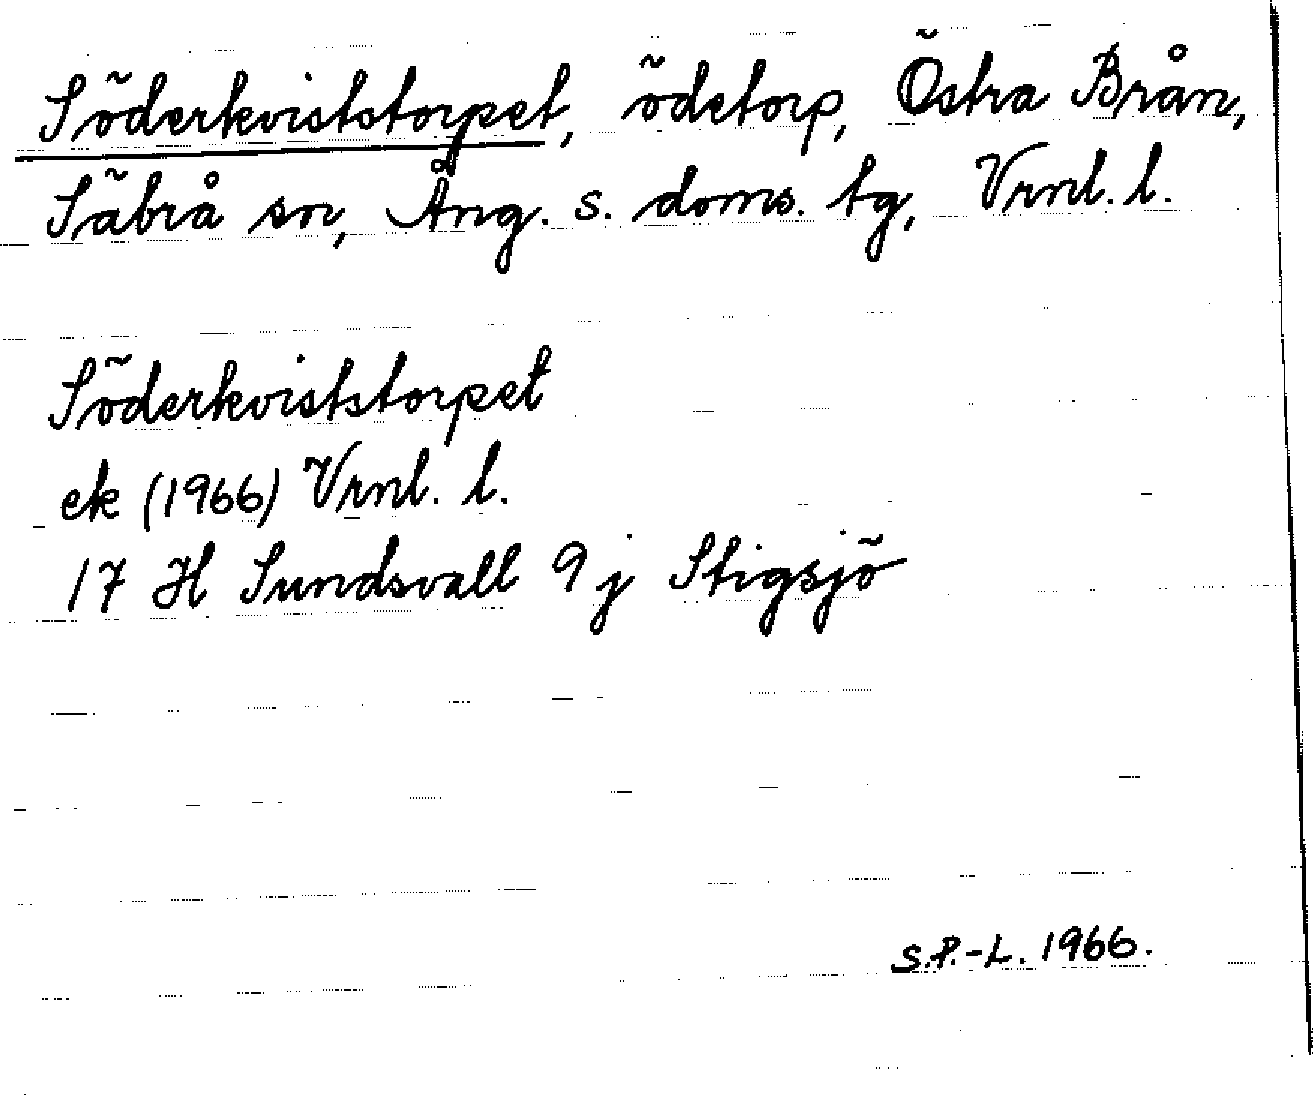 Söderkviststorpet, ödetorp, Östra Brån,
Säbrå sn, Ång. s. doms. tg, Vrnl. l.
Söderkviststorpet
ek (1966) Vrnl. l.
17 H Sundsvall 9 j Stigsjö
S.P.-L. 1966.